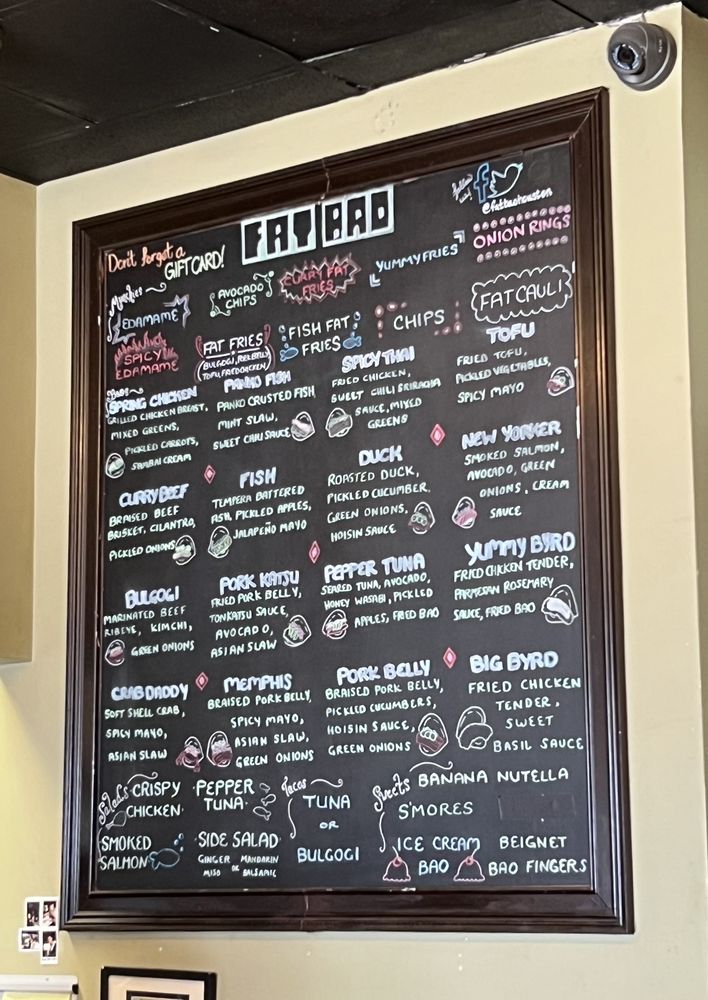 Don't forget a
GIFT CARD!
FAT BAO
follow us!
@fatbaohouston
Munchies
EDAMAME
AVOCADO
CHIPS
CURRY FAT
FRIES
YUMMY FRIES
ONION RINGS
SPICY
EDAMAME
FAT FRIES
(BULGOGI, PORK BELLY,
TOFU, FRIED CHICKEN)
FISH FAT
FRIES
CHIPS
FAT CAULI
Baos
SPRING CHICKEN
GRILLED CHICKEN BREAST,
MIXED GREENS,
PICKLED CARROTS,
SAMBAI CREAM
PANKO FISH
PANKO CRUSTED FISH,
MINT SLAW,
SWEET CHILI SAUCE
SPICY THAI
FRIED CHICKEN,
SWEET CHILI SRIRACHA
SAUCE, MIXED
GREENS
TOFU
FRIED TOFU,
PICKLED VEGETABLES,
SPICY MAYO
CURRY BEEF
BRAISED BEEF
BRISKET, CILANTRO,
PICKLED ONIONS
FISH
TEMPERA BATTERED
FISH, PICKLED APPLES,
JALAPEÑO MAYO
DUCK
ROASTED DUCK,
PICKLED CUCUMBER,
GREEN ONIONS,
HOISIN SAUCE
NEW YORKER
SMOKED SALMON,
AVOCADO, GREEN
ONIONS, CREAM
SAUCE
BULGOGI
MARINATED BEEF
RIBEYE, KIMCHI,
GREEN ONIONS
PORK KATSU
FRIED PORK BELLY,
TONKATSU SAUCE,
AVOCADO,
ASIAN SLAW
PEPPER TUNA
SEARED TUNA, AVOCADO,
HONEY WASABI, PICKLED
APPLES, FRIED BAO
YUMMY BYRD
FRIED CHICKEN TENDER,
PARMESAN ROSEMARY
SAUCE, FRIED BAO
CRAB DADDY
SOFT SHELL CRAB,
SPICY MAYO,
ASIAN SLAW
MEMPHIS
BRAISED PORK BELLY,
SPICY MAYO,
ASIAN SLAW,
GREEN ONIONS
PORK BELLY
BRAISED PORK BELLY,
PICKLED CUCUMBERS,
HOISIN SAUCE,
GREEN ONIONS
BIG BYRD
FRIED CHICKEN
TENDER,
SWEET
BASIL SAUCE
Salads
CRISPY
CHICKEN
PEPPER
TUNA
SMOKED
SALMON
SIDE SALAD
GINGER OR MANDARIN
MISO BALSAMIC
Tacos
TUNA
OR
BULGOGI
Sweets
BANANA NUTELLA
S'MORES
ICE CREAM
BAO
BEIGNET
BAO FINGERS